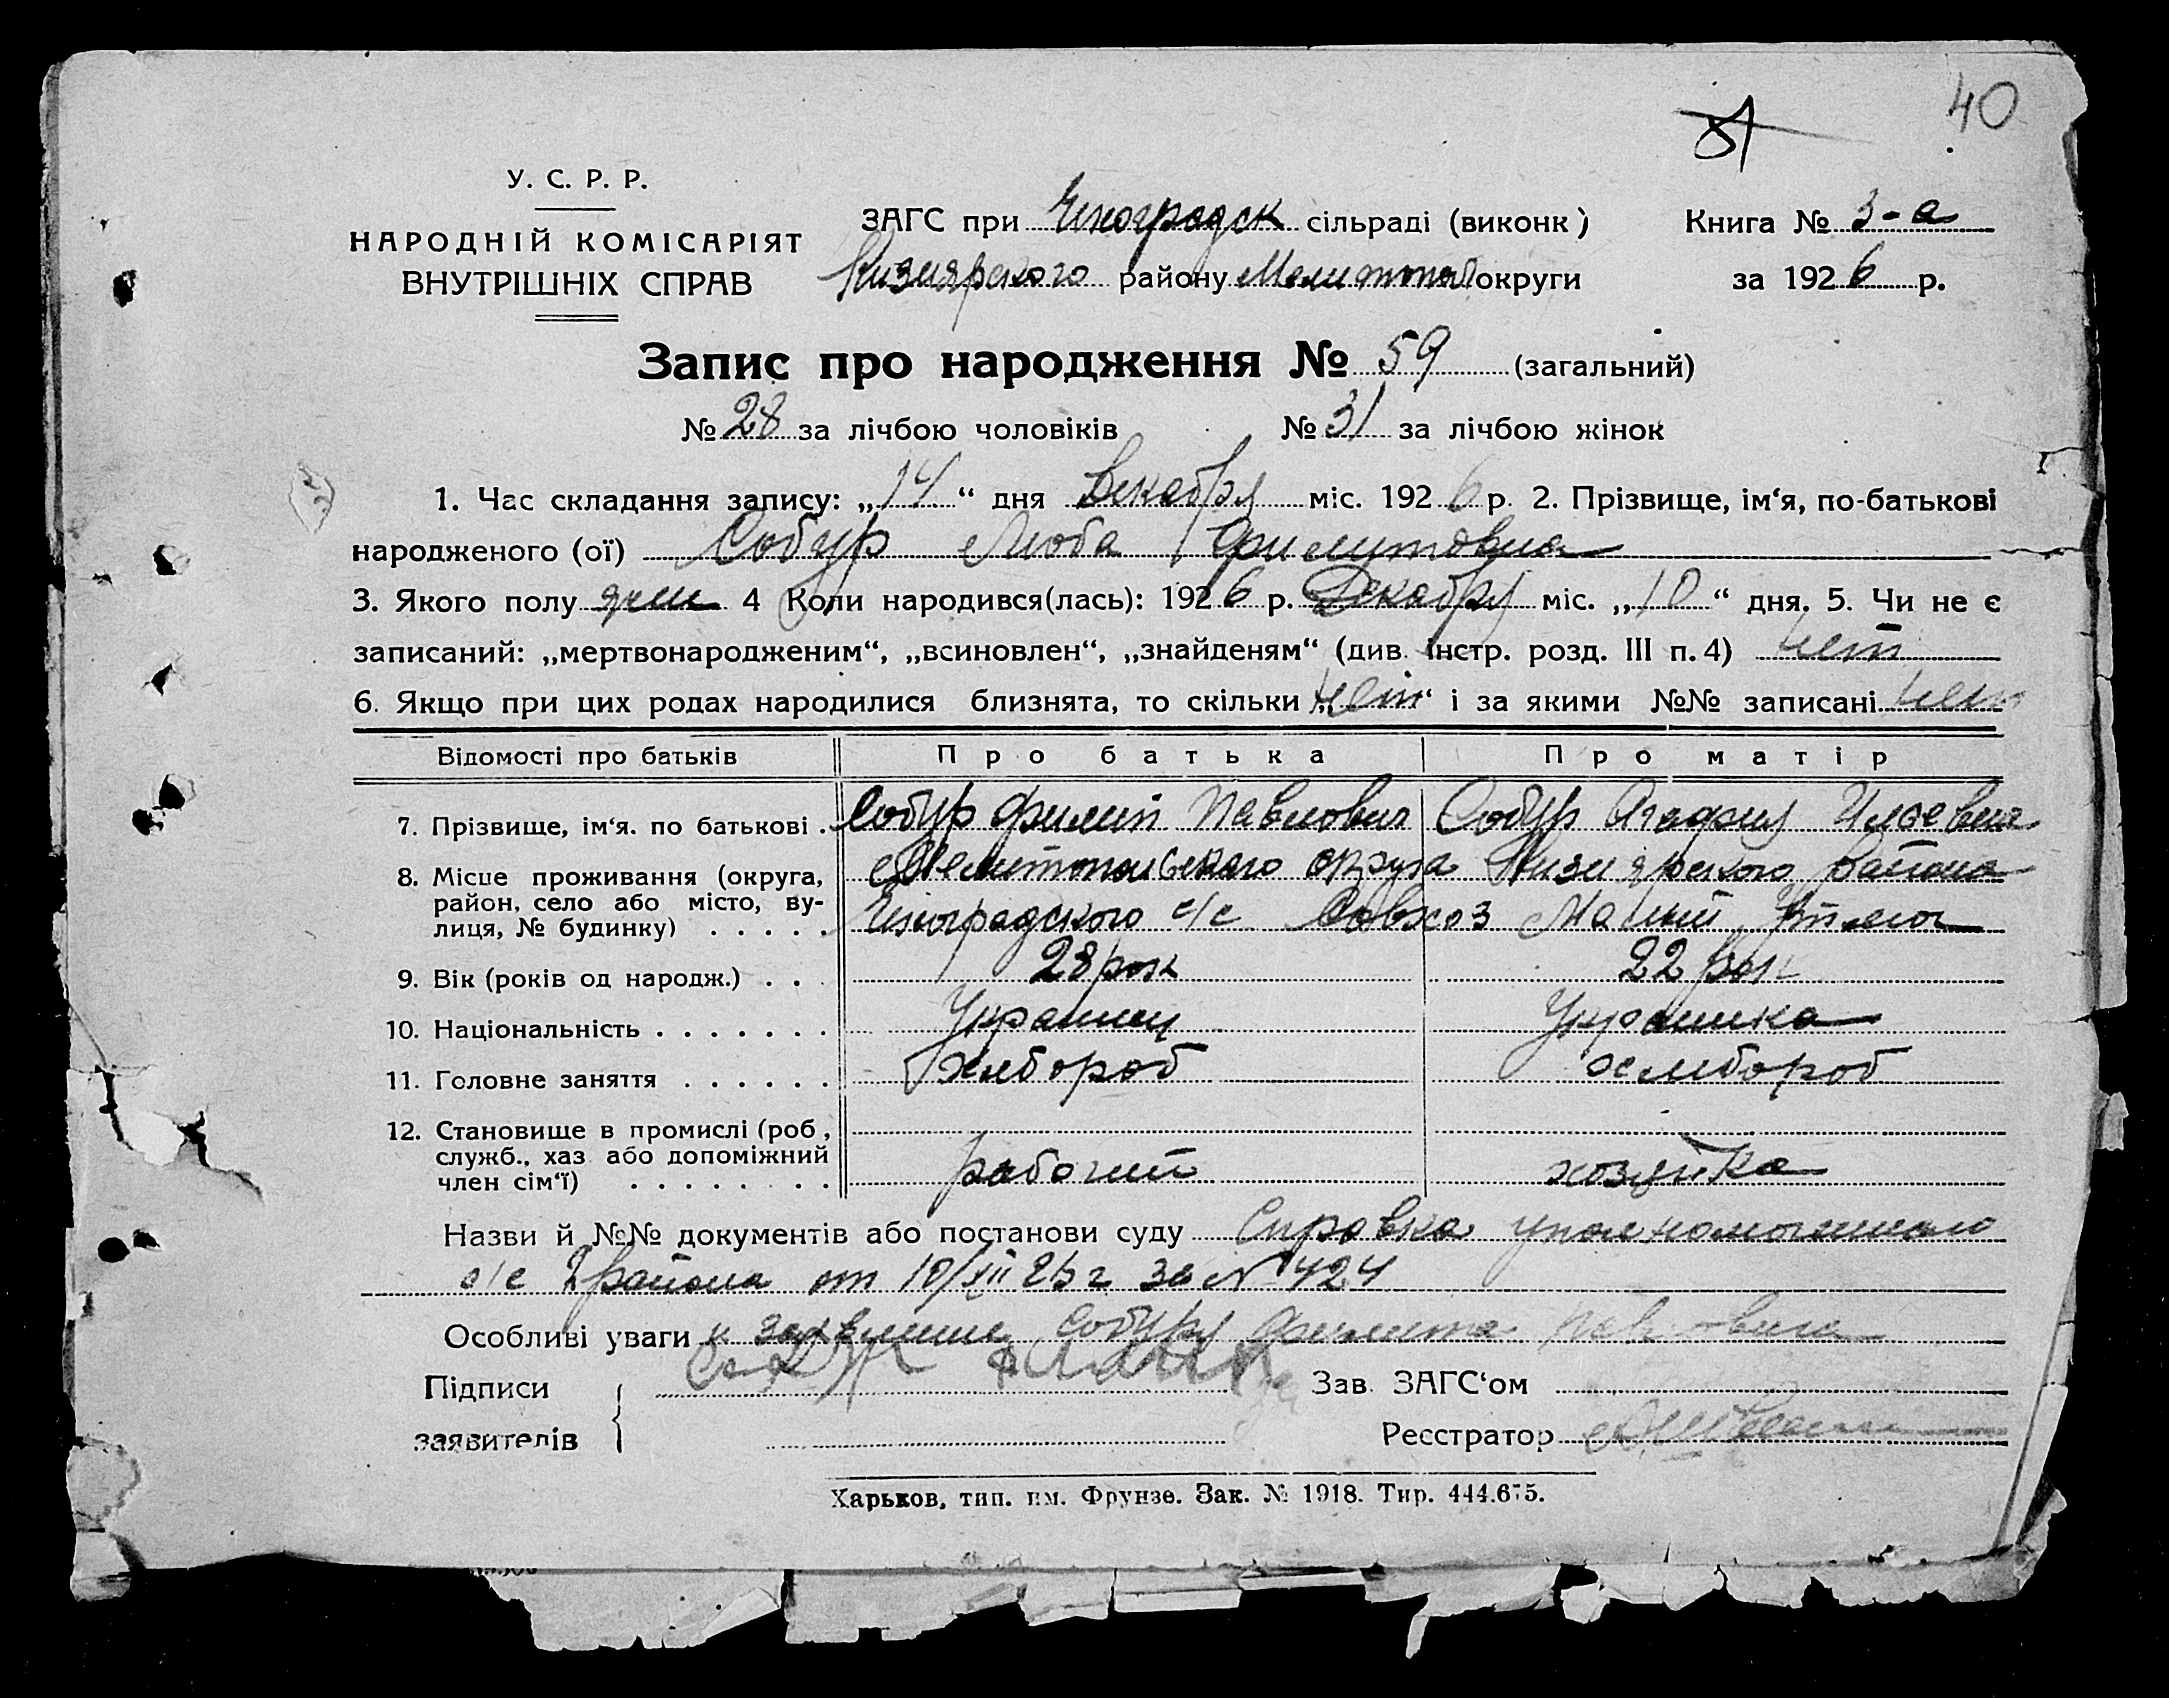 40
У. С. Р. Р.
НАРОДНІЙ КОМІСАРІЯТ
ВНУТРІШНІХ СПРАВ
ЗАГС при сільраді (виконк)
Книга № 3-а
Кизиярского району Мелитопол округи
за 1926 р.
Запис про народження № 59 (загальний)
№ 28 за лічбою чоловіків № 31 за лічбою жінок
1. Час складання запису: „14“ дня Декабря міс. 1926 р. 2. Прізвище, ім‘я, по-батькові
народженого (ої) Собур Люба
3. Якого полу жен 4 Коли народився(лась): 1926 р. Декабря міс. „10“ дня. 5. Чи не є
записаний: „мертвонародженим“, „всиновлен“, „знайденям“ (див. інстр. розд. III п. 4) нет
6. Якщо при цих родах народилися близнята, то скільки „нет“ і за якими №№ записані нет
Відомості про батьків Про батька Про матір
7. Прізвище, ім‘я. по батькові . Собур Филип Павлович Собур Агафия Ильевна
8. Місце проживання (округа, Мелитопольского округа Кизиярского района
район, село або місто, ву-
лиця, № будинку) . . . . . с/с Совхоз Малый Утлюг
9. Вік (років од народж.) . . . 28 рок 22 рок
10. Національність . . . . . . . Украинец Украинка
11. Головне заняття . . . . . . хлебороб хлебороб
12. Становище в промислі (роб,
служб., хаз або допоміжний
член сім‘ї) . . . . . . . . рабочий хозяйка
Назви й №№ документів або постанови суду Справка уполномоченного
с/с 2 района от 10/XII 26 г за № 424
Особливі уваги и заявление Собура Филипа Павловича
Підписи
заявителів
Собур Филип
Зав. ЗАГС‘ом
Реєстратор
Харьков, тип. им. Фрунзе. Зак. № 1918. Тир. 444.675.